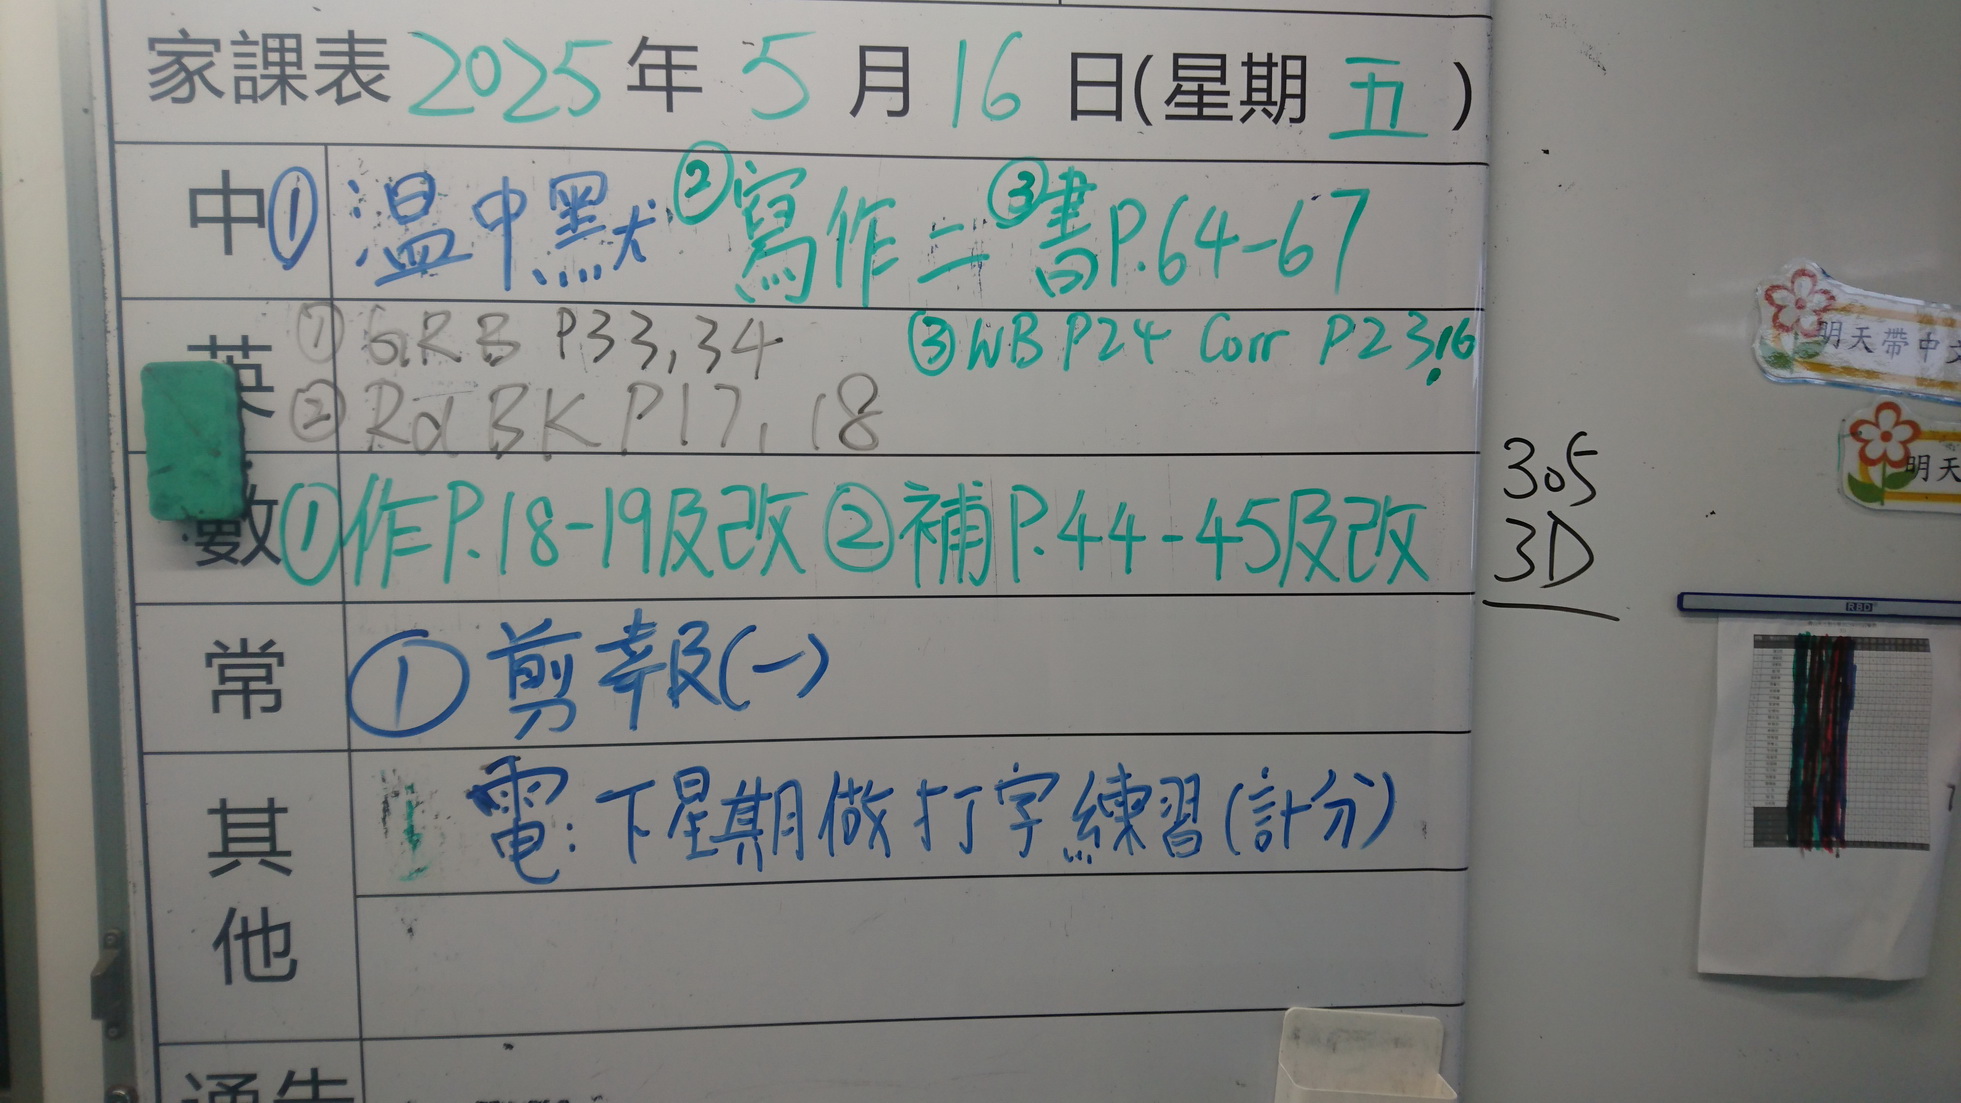 家課表 2025 年 5 月 16 日(星期 五 )
中 ① 溫中默 ② 寫作二 ③ 書P.64-67
英 ① GRB P33,34 ③ WB P24 Corr P23,16
② Rd BK P17, 18
數 ① 作P.18-19及改 ② 補P.44-45及改
常 ① 剪報(一)
其他 電:下星期做打字練習(計分)
通告
305
3D
明天帶中文
明天
RBD